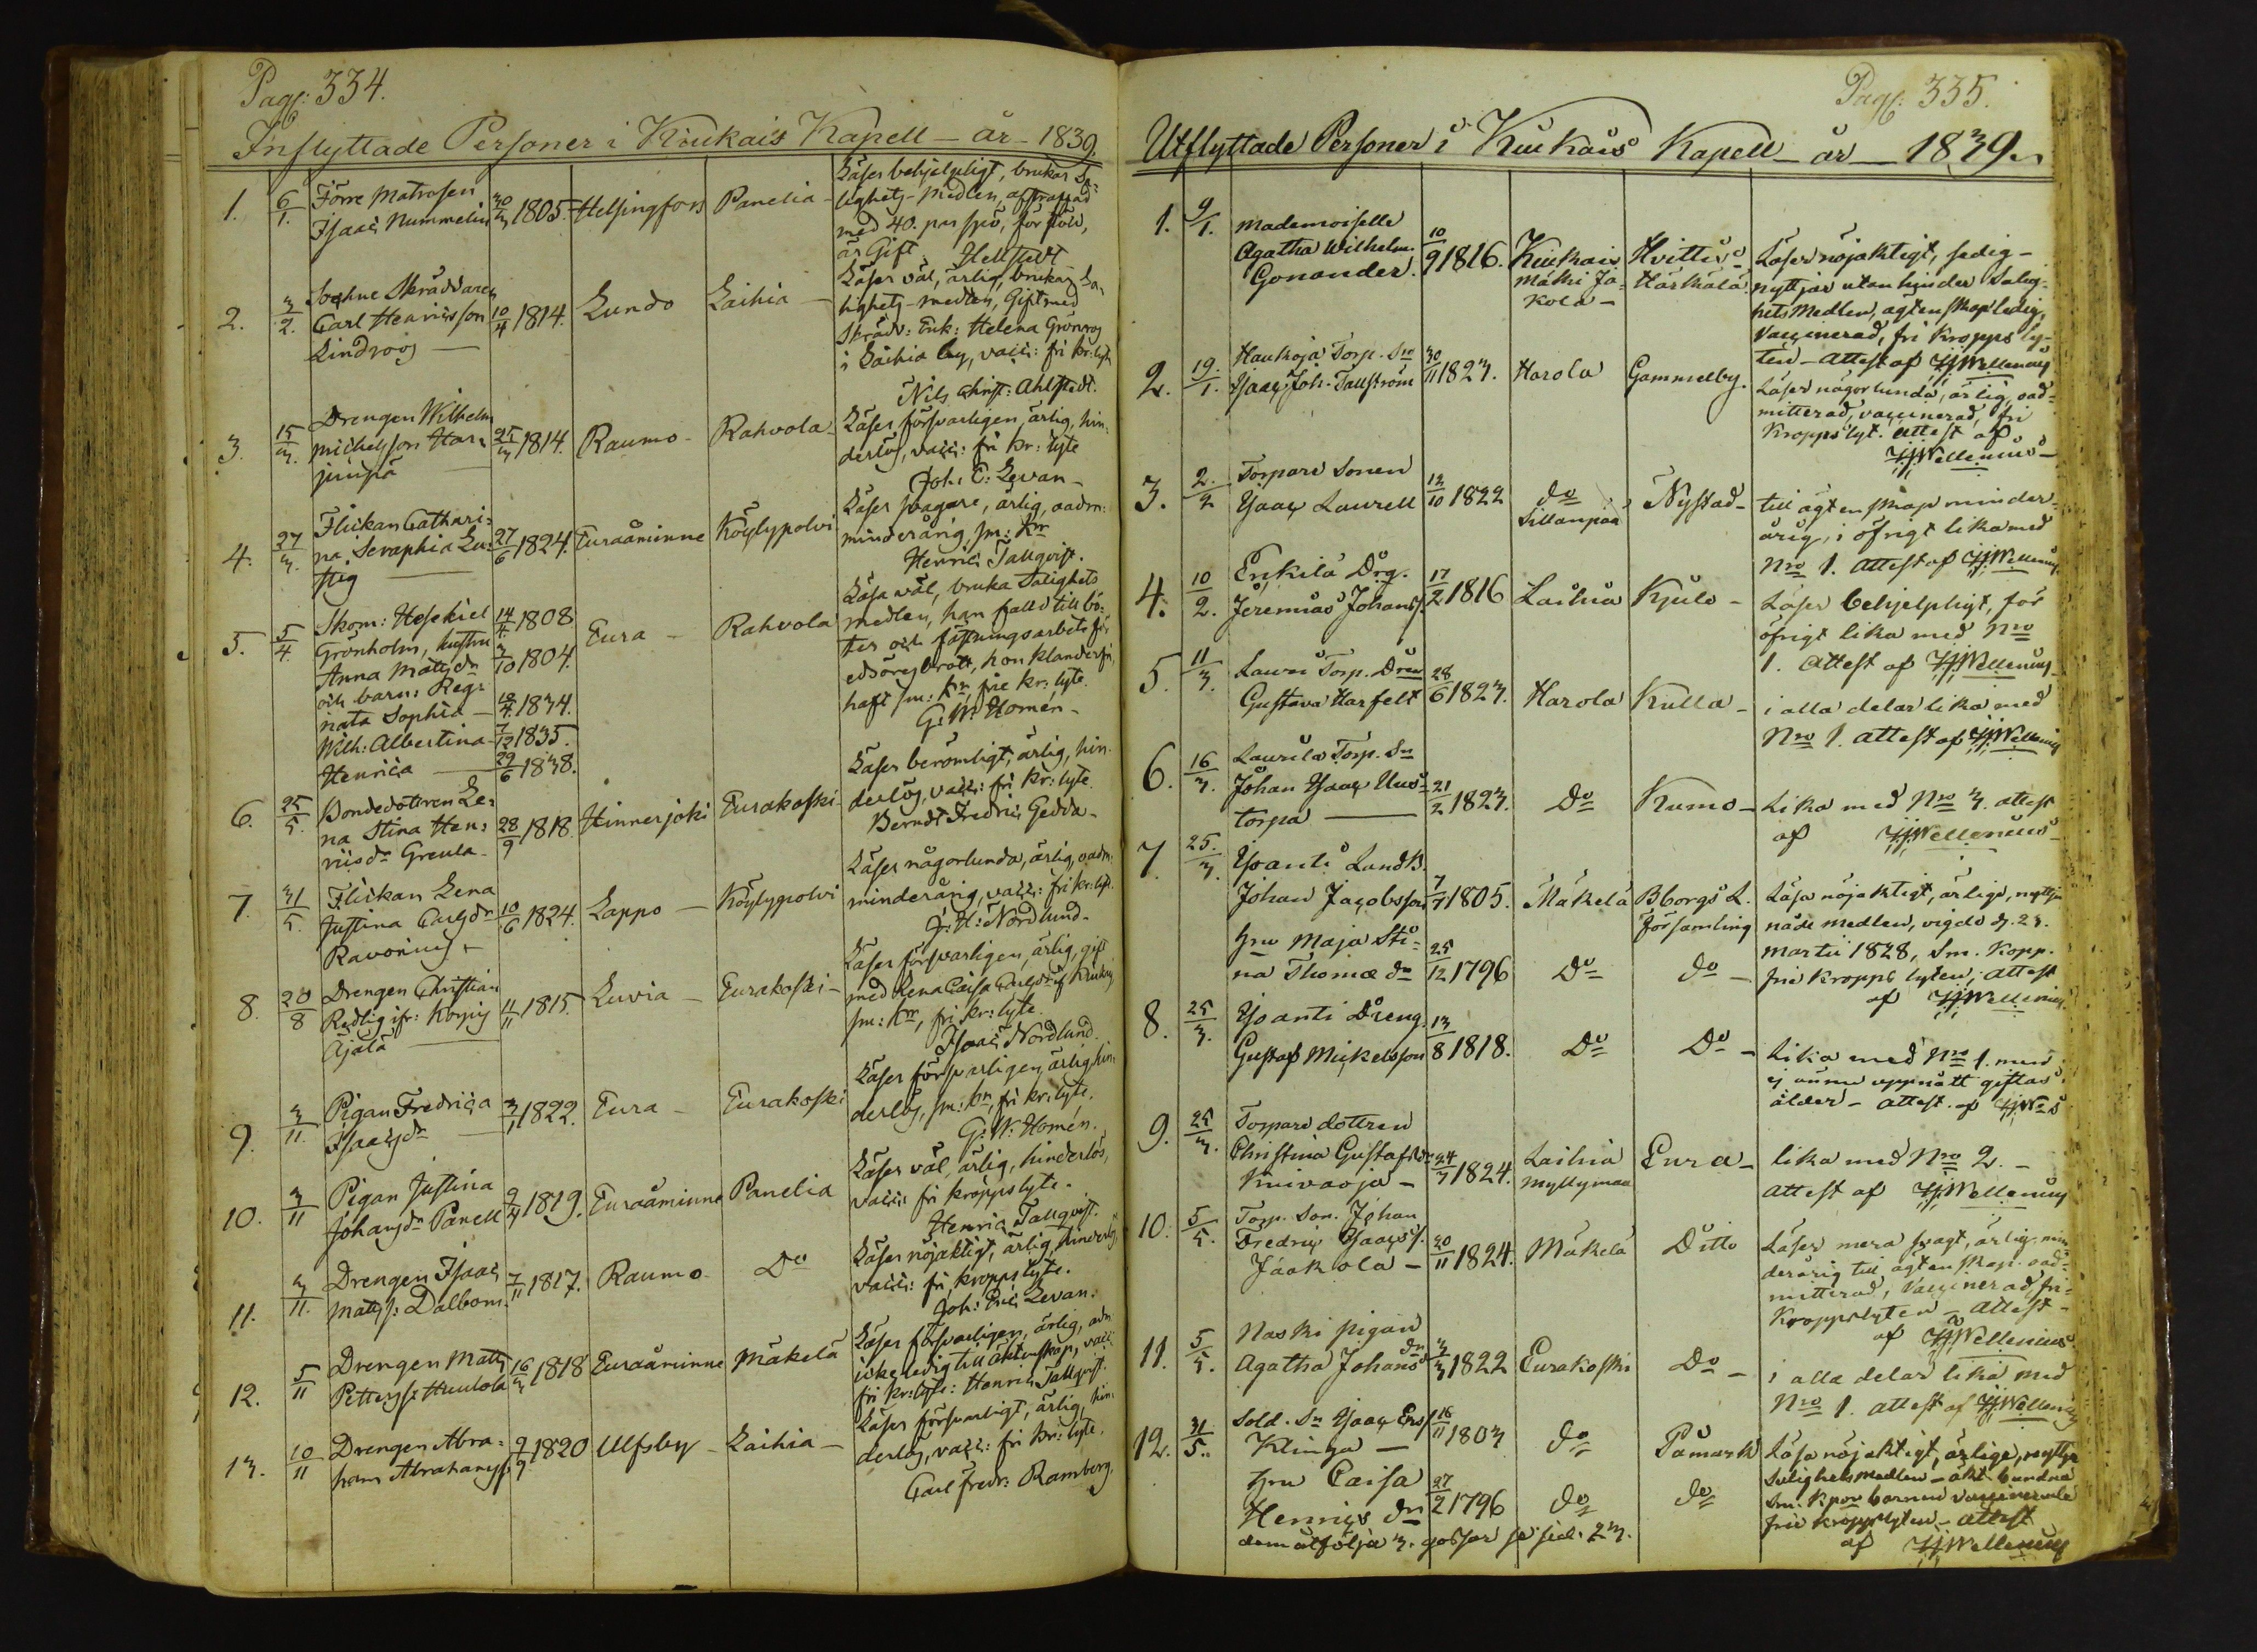 Pag: 334.
Inflyttade Personer i Kiukais Kapell - år - 1839.
1. 6/1. Förre Matrosen
Isaac Nummelin 1805. Helsingfors Panelia
Läser behjelpligt, brukar Sa-
lighets-medlen, afstraffad
med 40. par spö, för stöld,
är Gift. Hellstedt
2. 3/2. Sockne Skräddaren
Carl Henricsson 10/4 1814. Lundo Laihia -
Lindroos
Läser väl, ärlig, brukar Sa-
lighets-medlen, Gift med
Skrädd: Enk: Helena Grönroos
i Laihia by, vacc: fri kr: lyte
Nils Christ: Ahlstedt.
3. 15/3. Drengen Wilhelm
Michelsson Har-
junpä 25/3 1814. Raumo - Rahvola -
Läser försvarligen, ärlig, hin-
derlös, vacc: fri kr: lyte
Joh: E: Levan -
4. 27/3. Flickan Cathari-
na Seraphia Lu-
stig 27/6 1824. Euraåminne Köylypolvi
Läser svagare, ärlig, oadm:
minderårig, sm: Kr
Henric Tallqvist.
5. 5/4. Skom: Heskiel 14/4 1808
Grönholm, hustru
Anna Matts dr 3/10 1804. Eura - Rahvola
och barn: Regi-
nata Sophia - 1834.
Wilh: Albertina 7/12 1835.
Henrica 29/6 1838.
Läsa väl, bruka Salighets
medlen, han fälld till bö-
ter och fästningsarbete för
edsöresbrott, hon klanderfri,
haft sm: kr, frie kr: lyte.
G: W: Homén -
6. 25/5. Bondedottren Le-
na Stina Hen-
rics dr Greula - 28/9 1818 Hinnerjoki Eurakoski -
Läser berömligt, ärlig, hin-
derlös, vacc: fri kr: lyte.
Berndt Fredric Gedda -
7. 31/5. Flickan Lena
Justina Carls dr 10/6 1824. Lappo - Köylypolvi
Ravonius
Läser någorlunda, ärlig, oadm:
minderårig, vacc: fri kr: lyt.
J: H: Nordlund -
8. 28/8 Drengen Christian
Redlig ifr: Korpis 4/11 1815. Luvia - Eurakoski -
Ajala
Läser försvarligen, ärlig, gift
med Lena Caisa Carlsdr
sm: Kr, fri kr: lyte.
Isaac Nordlund.
9. 3/11. Pigan Fredrica
Isaacs dr 3/1 1822. Eura - Eurakoski
Läser försvarligen, ärlig, hin-
derlös, sm: kr, fri kr: lyte.
G: W: Homén.
10. 3/11 Pigan Justina
Johans dr Panell 9/4 1819. Euraåminne Panelia
Läser väl, ärlig, hinderlös,
vacc: fri kroppslyte.
Henric Tallqvist.
11. 3/11. Drengen Isaac
Mattss: Dalbom. 7/11 1817. Raumo - Do
Läser nöjaktigt, ärlig, hinderlös,
vacc: fri kroppslyte.
Joh: Eric Levan.
12. 5/11 Drengen Matts
Petterss: Huulola 16/3 1818 Euraåminne Mäkelä
Läser försvarligen, ärlig, adm
icke ledig till äktenskap, vacc:
fri kr: lyte: Henric Tallqvist.
13. 10/11 Drengen Abra-
ham Abrahamss 9/9 1820 Ulfsby - Laihia -
Läser försvarligt, ärlig, hin-
derlös, vacc: fri kr: lyte.
Carl Fredr: Ramberg.
Pag: 335.
Utflyttade Personer i Kiukais Kapell - år - 1839.
1. 9/1. Mademoiselle
Agatha Wilhelm.
Gonander. 10/9 1816. Kiukais Hvittis
Mäkki Ja- Härkälä
kola -
Läser nöjaktigt, sedig -
nyttjar utan hinder Salig-
hets Medlen, ägtenskaps ledig,
Vaccinerad, fri Kropps ly-
ten - Attest af HJWellenius
2. 19./1. Haukoja Torp. Sn
Isaac Joh. Tallström 30/11 1823. Harola Gammelby.
Läser någorlunda, ärlig, oad-
mitterad, vaccinerad, fri
Kropps lyt. Attest af
HJWellenius -
3. 2./2 Torpare Sonen
Isaac Laurell 12/10 1822 do Nystad -
Sillanpää
till ägtenskap minder-
årig, i öfrigt lika med
Nro 1. Attest af HJWellenius
4. 10/2. Erkilä Drg.
Jeremias Johanss. 17/2 1816 Laihia Kjulo -
Läser behjelpligt, för
öfrigt lika med Nro
1. Attest af HJWellenius
5. 11/3. Lauri Torp. Drn
Gustava Harfelt 28/6 1823. Harola Kulla -
i alla delar lika med
Nro 1. Attest af HJWellenius
6. 16/3. Laurila Torp. Sn
Johan Isaac Uus-
torpa 21/2 1823. Do Kumo -
Lika med Nro 3. attest
af HJWellenius -
7. 25./3. Isoanti Landb.
Johan Jacobsson 7/7 1805. Mäkelä Bborgs L.
församling
hru Maja Sti-
na Thomæ dr 25/12 1796 Do do -
Läsa nöjaktigt, ärlige, nyttja
nåde medlen, vigde d. 23.
martii 1828, Sm. Kopp.
frie Kropps lyten, Attest
af HJWellenius
8. 25/3. Isoanti Dreng
Gustaf Mickelsson 13/8 1818. Do Do -
Lika med Nro 1. men
ej ännu uppnått giftas
ålder - Attest af HJWs
9. 25/3. Torpare dottren
Christina Gustafsdr 24/7 1824. Laihia Eura -
Knivaoja - Myllymaa
lika med Nro 2. -
Attest af HJWellenius
10. 5/5. Torp. Son. Johan
Fredric Isaacs s. 30/11 1824. Mäkelä Ditto
Jaakola -
Läser mera svagt, ärlig, min
derårig till ägtenskap. oad-
mitterad, Vaccinerad, fri
Kroppslyten - Attest -
af HJWellenius
11. 5/5. Naski pigan
Agatha Johans dr 3/3 1822 Eurakoski Do -
i alla delar lika med
Nro 1. attest af HJWellenius
12. 31/5. Sold. Sn Isaac Ers. 16/11 1803 do Påmark
Klinga -
hru Caisa
Henrics dr 27/2 1796 do do
dem åtfölja 3. gossar se sid. 23.
Läsa nöjaktigt, ärlige, nyttja
Salighetsmedlen - äkt. bundne
Sm. Kpor barnen vaccinerade
frie kroppslyten - Attest
af HJWellenius